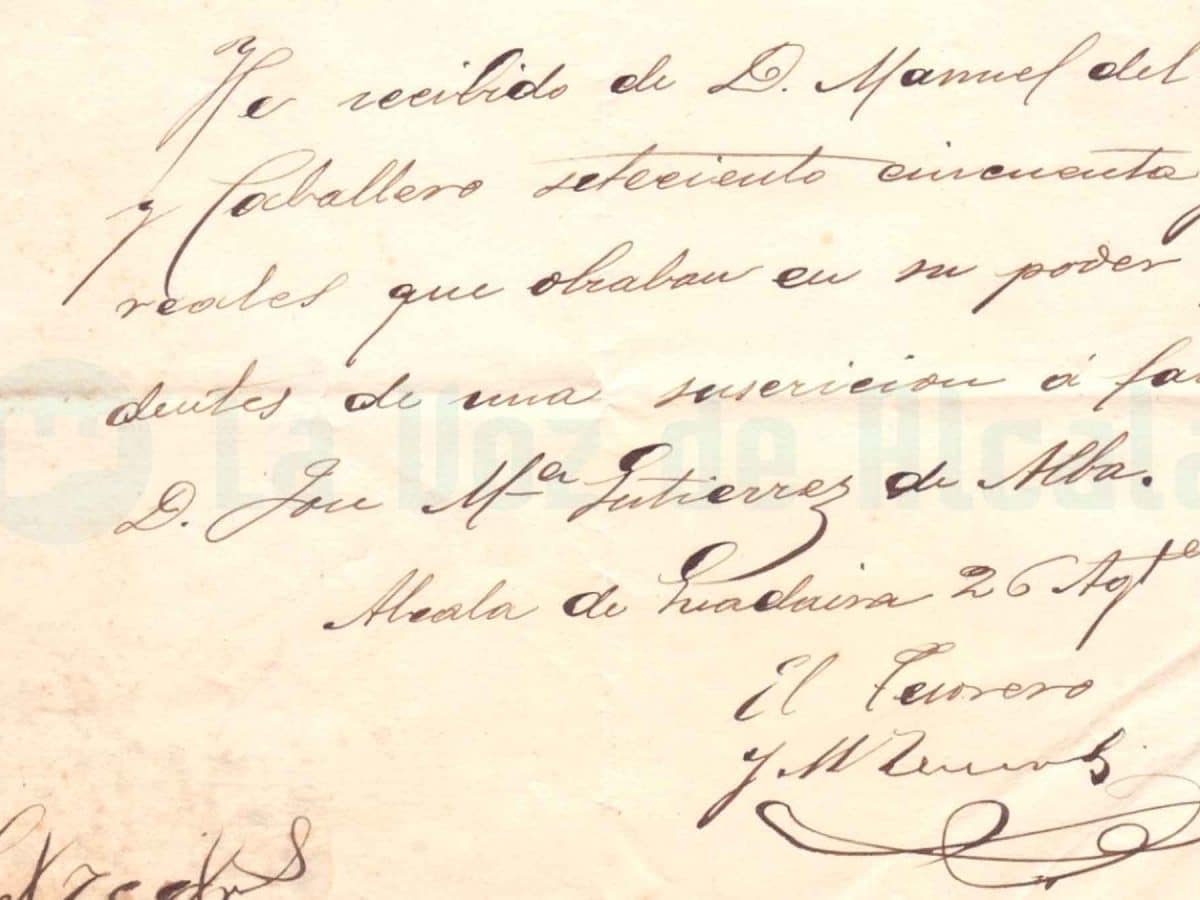 He recibido de D. Manuel del
y Caballero setecientos cincuenta y
reales que obraban en su poder
dentes de una suscricion á fa
D. Jose Mª Gutierrez de Alba.
Alcala de Guadaira 26 Agto
El Tesorero
La Voz de Alcalá